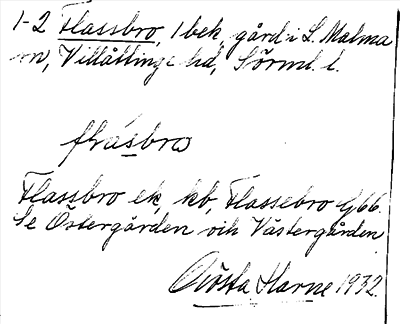 1-2 Flassbro, 1 bek gård i L. Malma
sn, Villåttinge hd, Sörml. l.
flásbro
Flassbro ek, kb, Flassebro G 66.
Se Östergården och Västergården
Gösta Harne 1932.